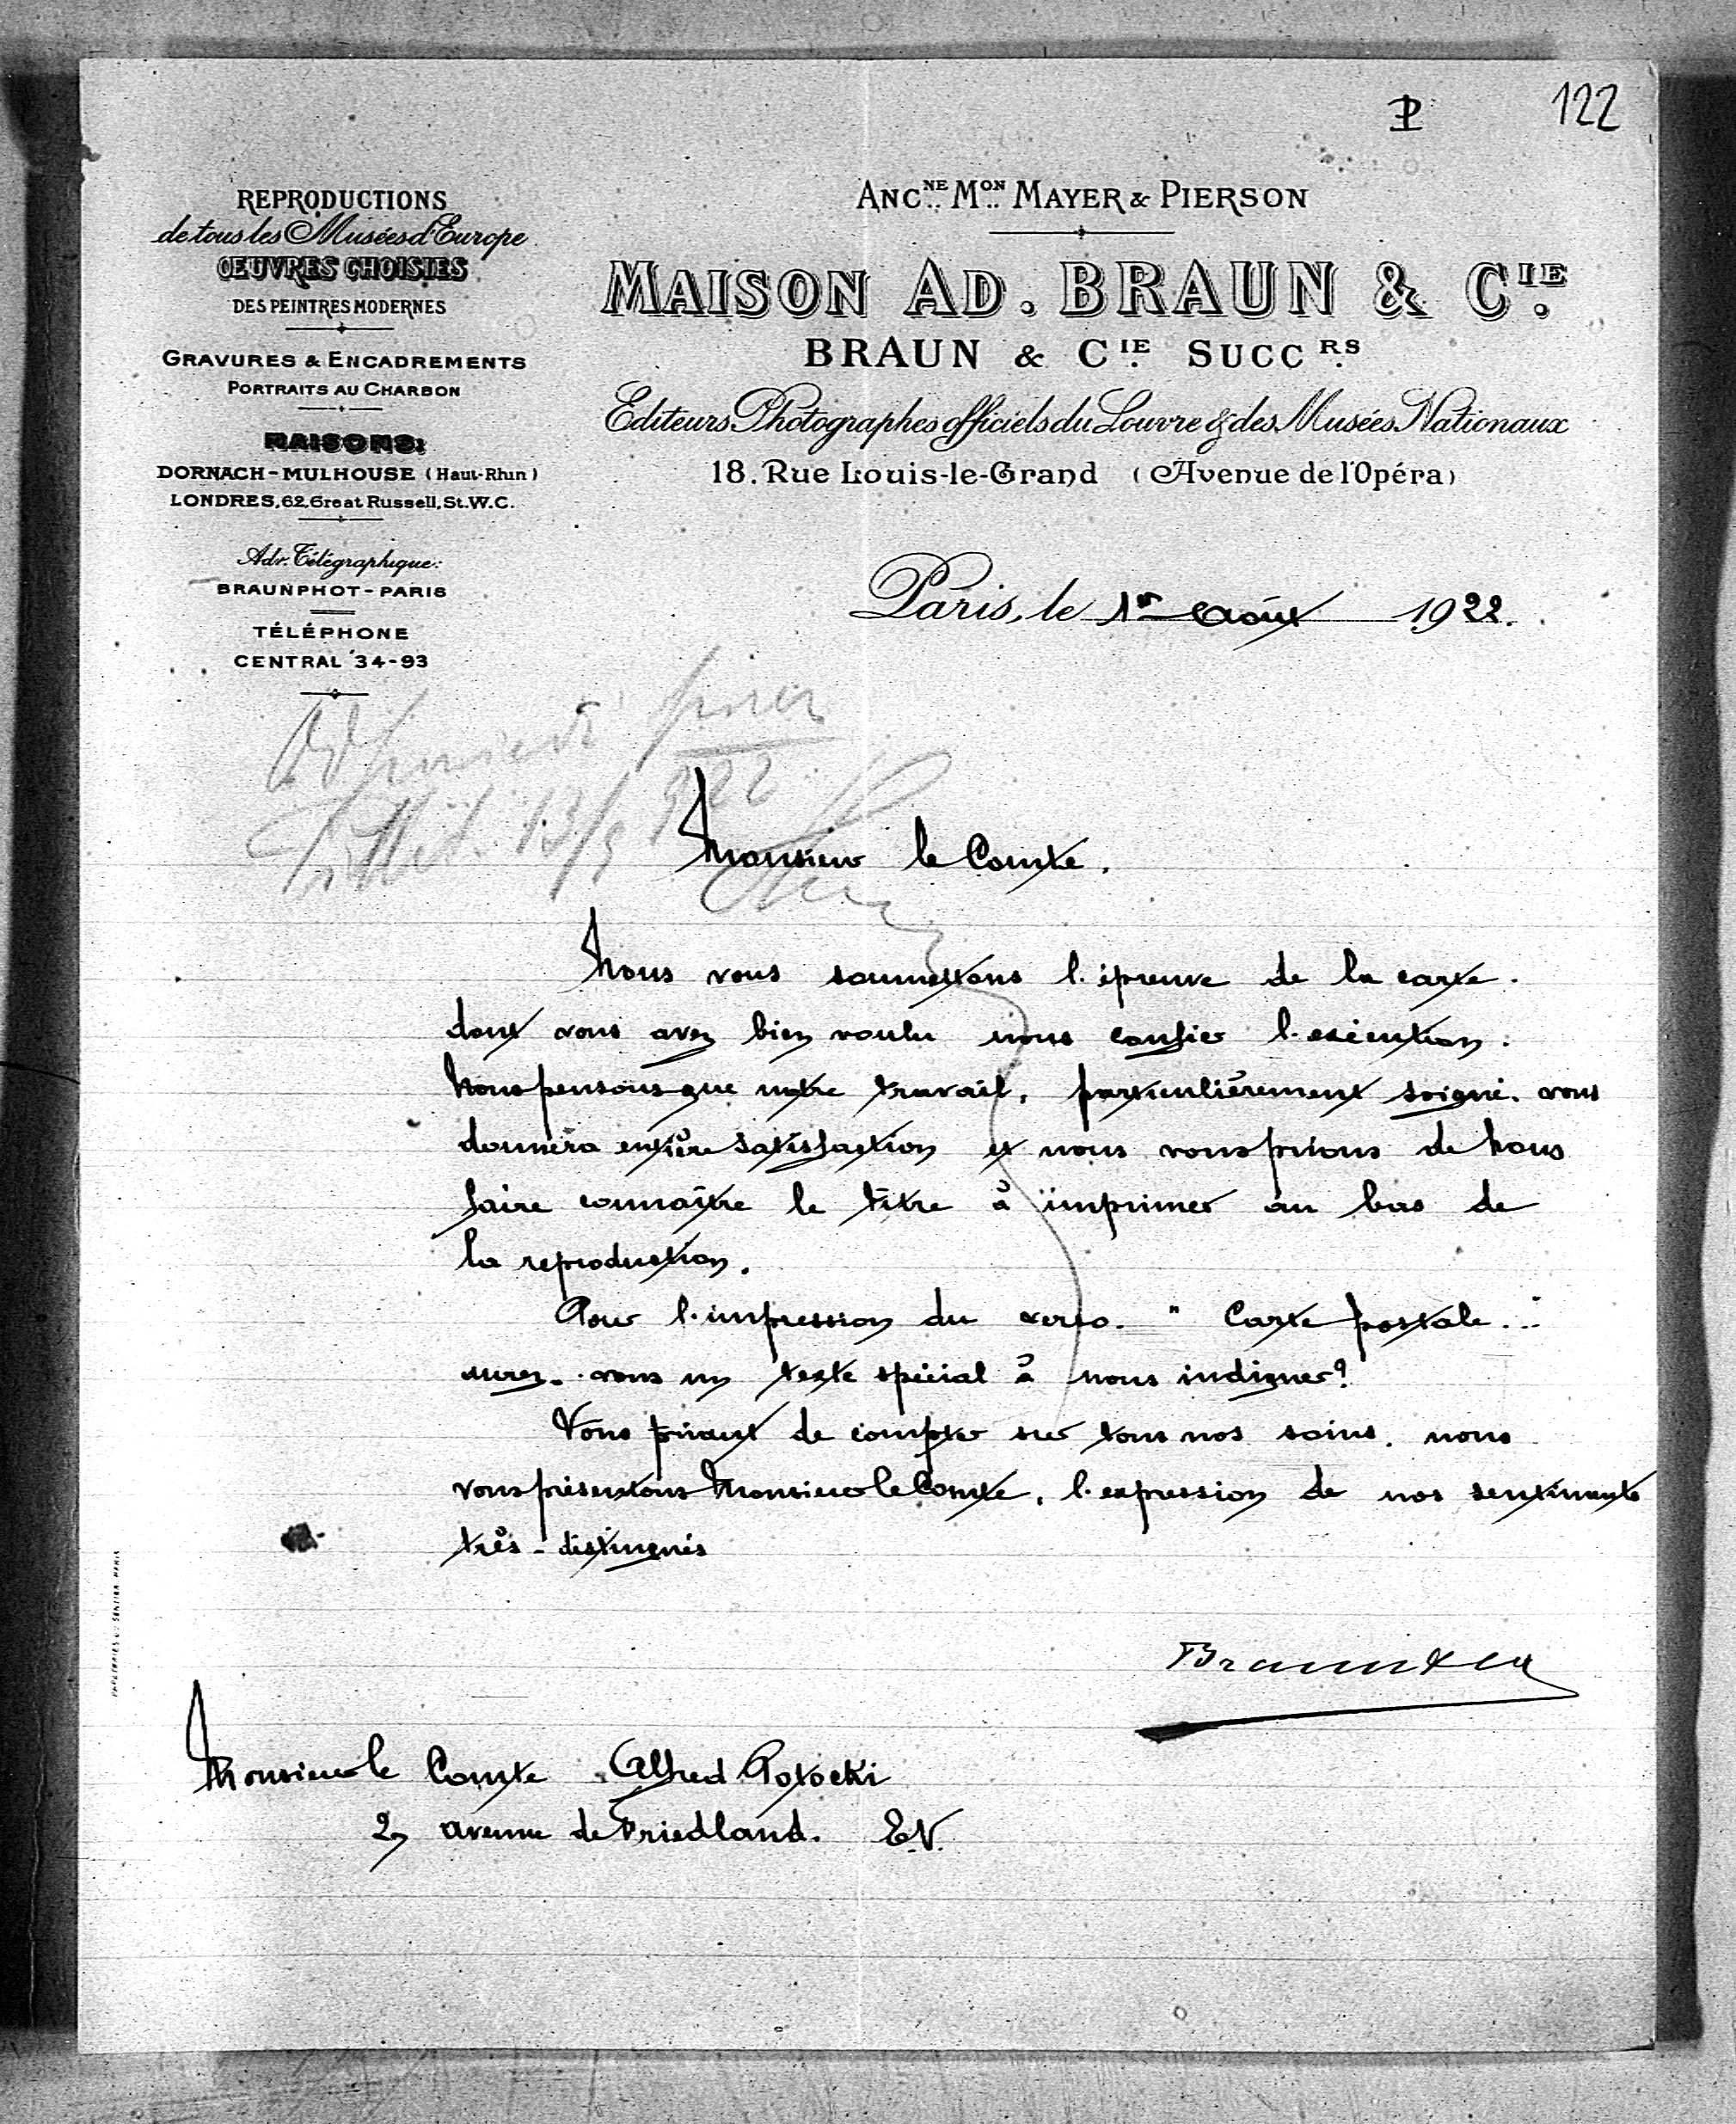 122
REPRODUCTIONS
de tous les Musées d'Europe
ŒUVRES CHOISIES
DES PEINTRES MODERNES
GRAVURES & ENCADREMENTS
PORTRAITS AU CHARBON
MAISONS:
DORNACH-MULHOUSE (Haut-Rhin)
LONDRES, 62, Great Russell, St. W.C.
Adr. Télégraphique:
BRAUNPHOT-PARIS
TÉLÉPHONE
CENTRAL 34-93
ANCNE MON MAYER & PIERSON
MAISON AD. BRAUN & CIE.
BRAUN & CIE SUCCRS
Editeurs Photographes officiels du Louvre & des Musées Nationaux
18. Rue Louis-le-Grand (Avenue de l'Opéra)
Paris, le 1er Août 1922.
13/9 922
Monsieur le Comte.
Nous vous soumettons l'épreuve de la carte.
dont vous avez bien voulu nous confier l'exécution.
Nous pensons que notre travail, particulièrement soigné. vous
donnera entière satisfaction et nous vous prions de nous
faire connaître le titre à imprimer au bas de
la reproduction.
Pour l'impression du verso. " Carte postale..."
aurez-vous un texte spécial à nous indiquer?
Vous priant de compter sur tous nos soins. nous
vous présentons Monsieur le Comte, l'expression de nos sentiments
très-distingués
Braun & Cie
Monsieur le Comte Alfred Potocki
2, avenue de Friedland. E.V.
PAPETERIES DU SENTIER PARIS